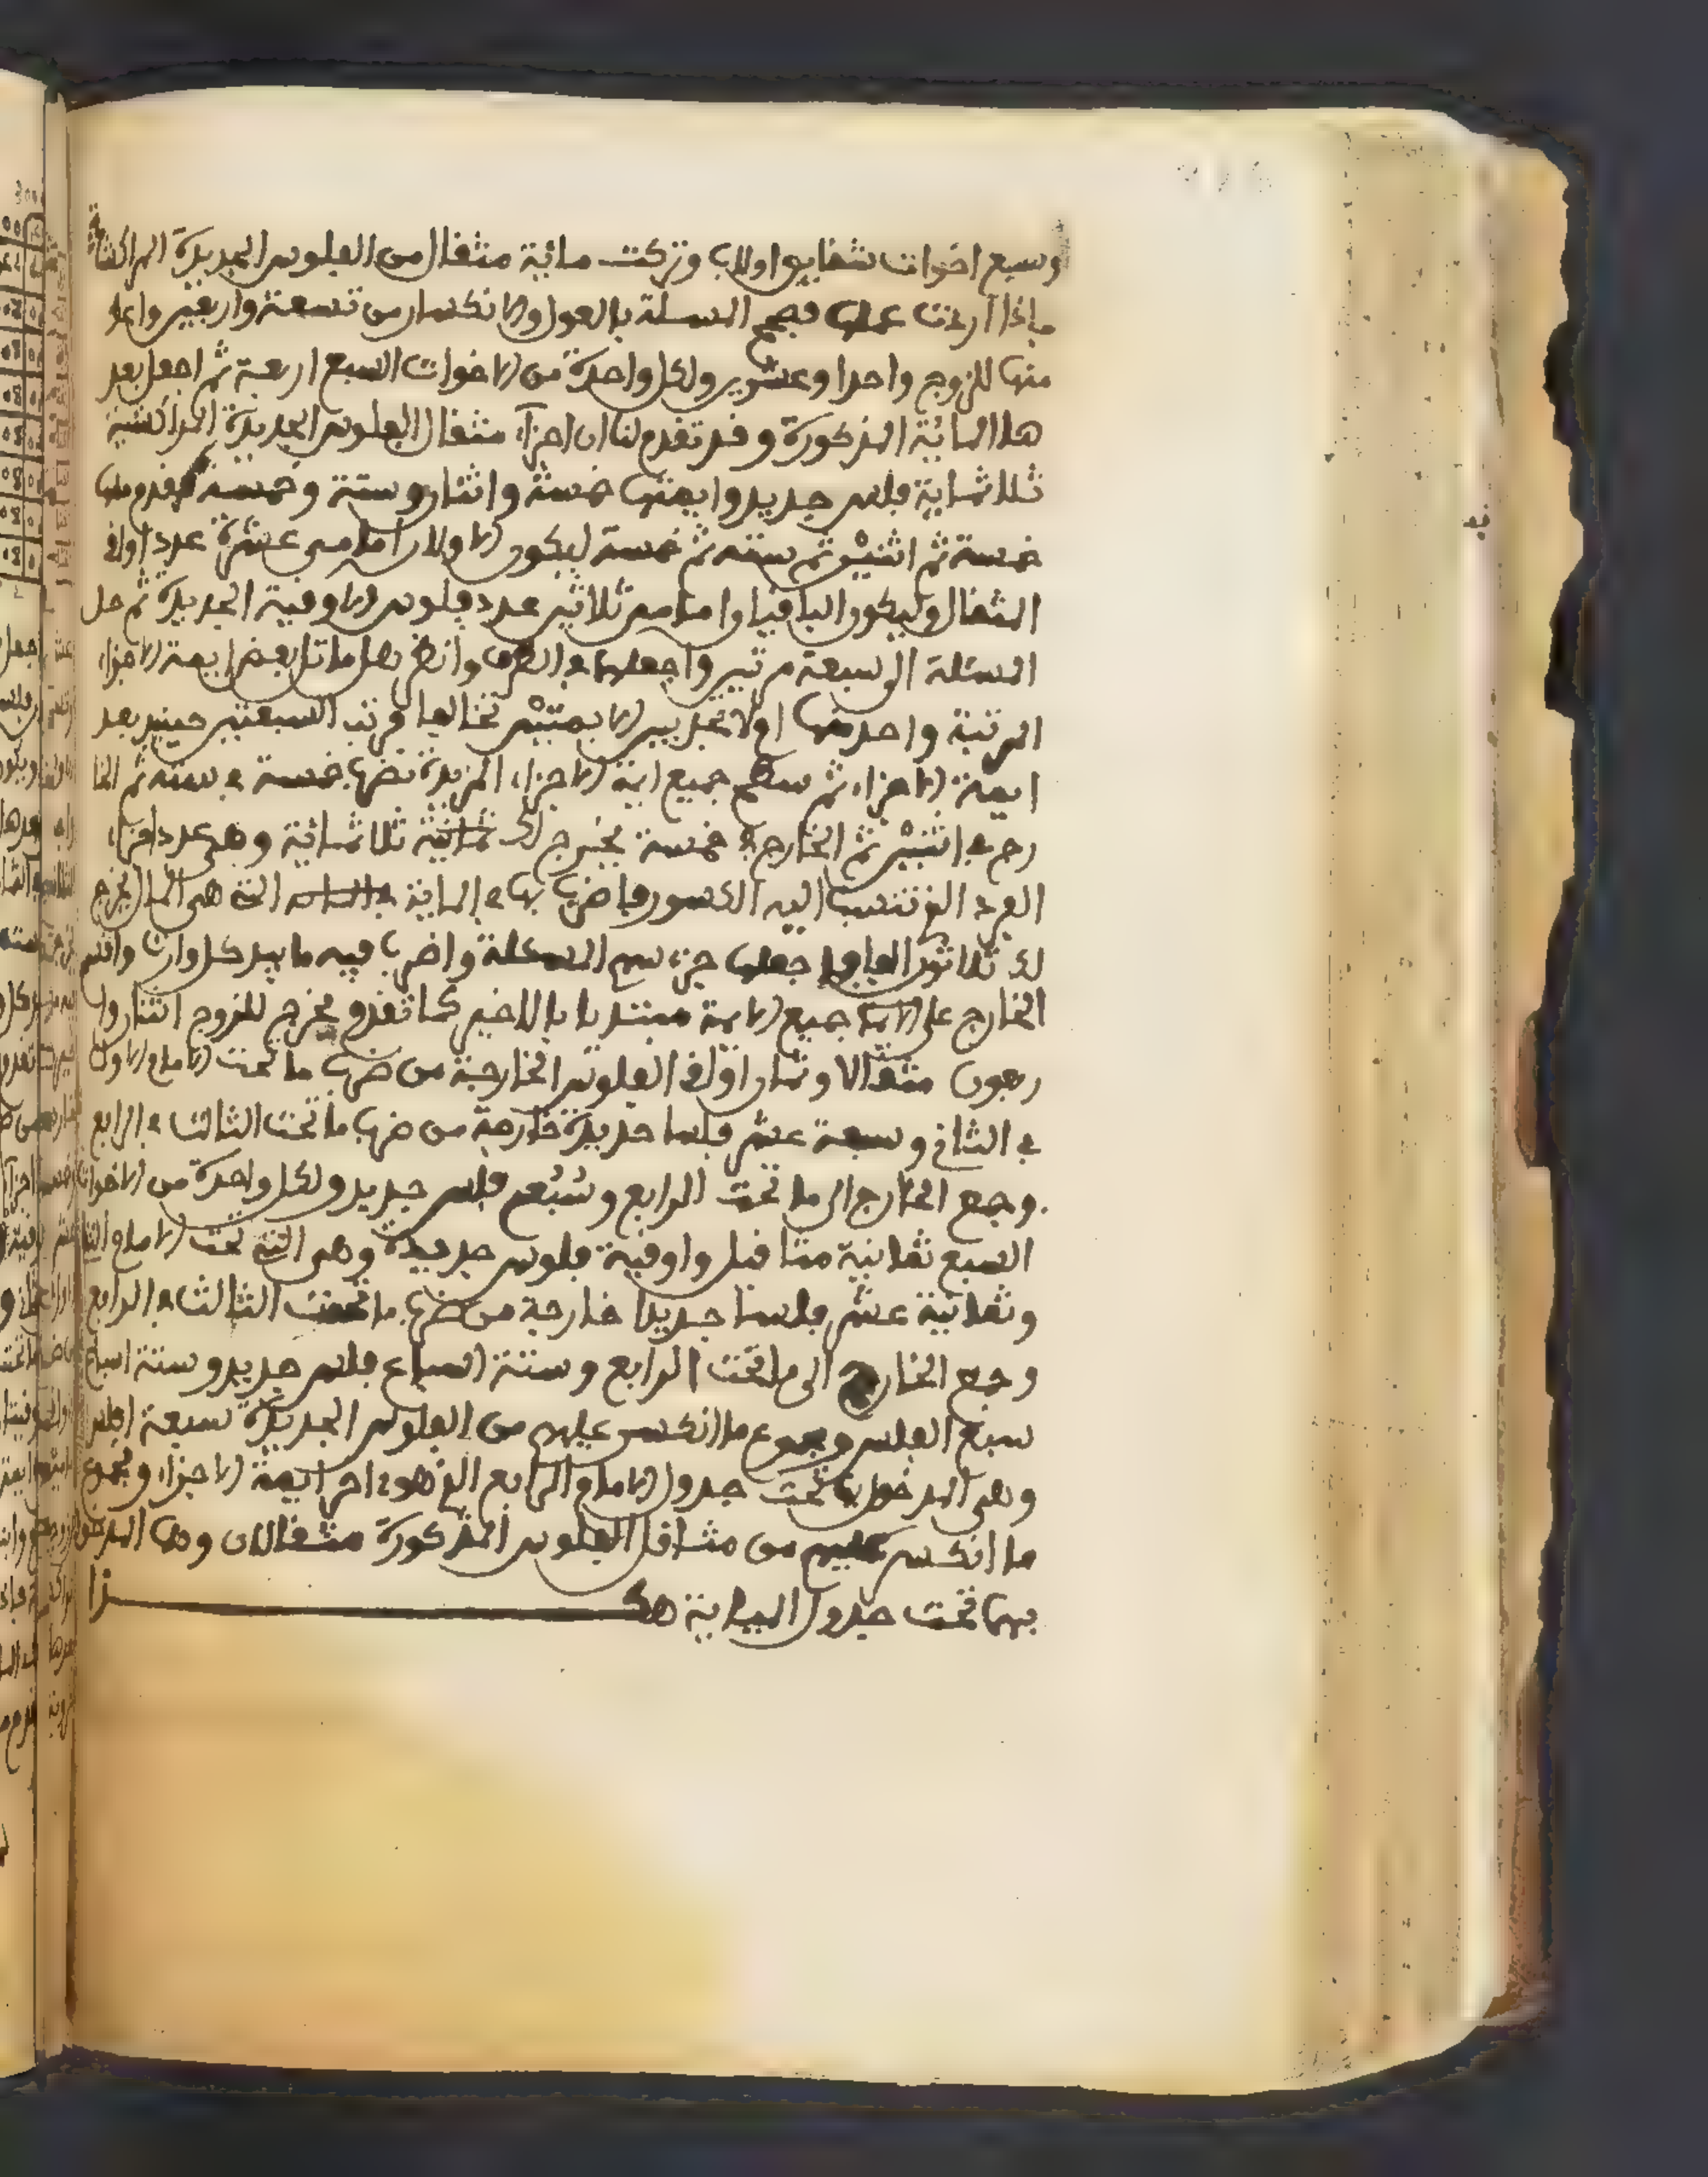 وسبع اخوات شقايق اولاب وتركت مائية مثقال من الفلوس الجديدة المراكشية
فاذا اردت عملها فصحح المسئلة بالعول والانكسار من تسعة واربعين واعط
منها للزوج واحدا وعشرين ولكل واحدة من الاخوات السبع اربعة ثم اجعل بعد
هذا المائية المذكورة وقد تقدم لنا ان اجزاء مثقال الفلوس الجديدة المراكشية
ثلاثمائة فلس جديد وايمتها خمسة واثنان وستة وخمسة فقدم منها
خمسة ثم اثنين ثم ستة ثم خمسة ليكون الاولان امامين عشرة عدد اواق
المثقال وليكون الباقيان امامين ثلاثين عدد فلوس الاوقية الجديدة ثم حل
المسئلة الى سبعة مرتين واجعلها في الطرف وانظر هل ماثل بعض ايمة الاجزاء
المرتبة واحد منها اولا تجد بين الايمتين تخالفا فرتب السبعتين حينئذ بعد
ايمة الاجزاء ثم سطح جميع ايمة الاجزاء المزيدة بضرب خمسة في ستة ثم الخا
رج في اثنين ثم الخارج في خمسة يخرج لك ثلاثمائة وهي عدد اجزاء
الفرد الذي تنسب اليه الكسور فاضرب بها في المائية التي هي المال يخرج
لك ثلاثون الفا فاجعلها جزء سهم المسئلة واضرب فيه ما بيد كل وارث واقسم
الخارج على جميع الايمة مبتديا بالاخير كما تقدم يخرج للزوج اثنان وا
ربعون مثقالا وثمان اواق الفلوس الخارجية من ضرب ما تحت الامام الاول
في الثاني وسبعة عشر فلسا جديدة خارجة من ضرب ما تحت الثالث في الرابع
وجمع الخارج الى ما تحت الرابع وسُبُع فلس جديد ولكل واحدة من الاخوات
السبع ثمانية مثاقيل واوقية فلوس جديدة وهي التي تحت الامام الثاني
وثمانية عشر فلسا جديدا خارجة من ضرب ما تحت الثالث في الرابع
وجمع الخارج الى ما تحت الرابع وستة اسباع فلس جديد وستة اسباع
سبع الفلس ومجموع ما انكسر عليهم من الفلوس الجديدة سبعة افلس
وهي المدخول بها تحت جدول الامام الرابع الذي هو اخر ايمة الاجزاء ومجموع
ما انكسر عليهم من مثاقل الفلوس المذكورة مثقالان وهما المدخول
بهما تحت جدول الميداينة هكـــــــذا